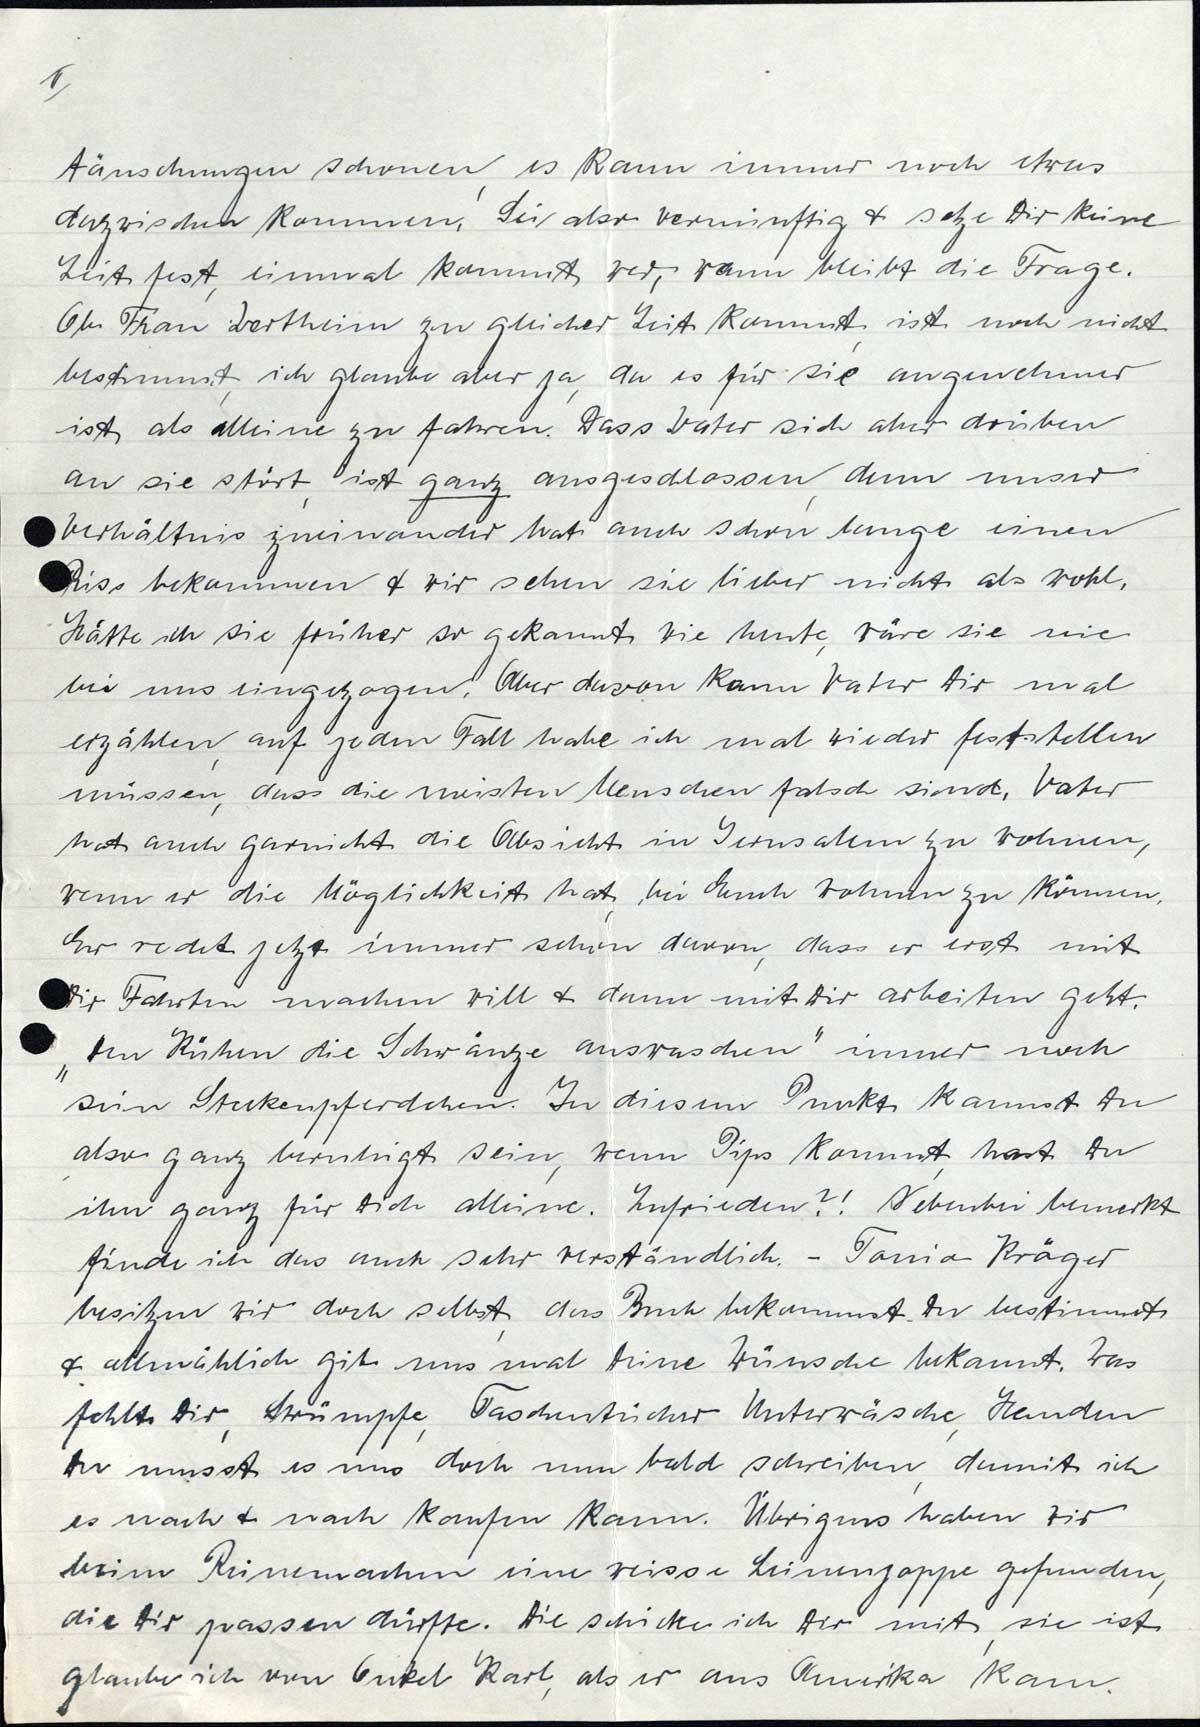 II,
täuschungen schonen, es kann immer noch etwas
dazwischen kommen. Sei also vernünftig & setze Dir keine
Zeit fest, einmal kommt wer, wann bleibt die Frage.
Ob Frau Wertheim zu gleicher Zeit kommt, ist noch nicht
bestimmt, ich glaube aber ja, da es für sie angenehmer
ist als alleine zu fahren. Dass Vater sich aber drüben
an sie stört, ist ganz ausgeschlossen, denn unser
Verhältnis zueinander hat auch schon lange einen
Riss bekommen & wir sehen sie lieber nicht als wohl.
Hätte ich sie früher so gekannt wie heute, wäre sie nie
bei uns eingezogen. Aber davon kann Vater Dir mal
erzählen, auf jeden Fall habe ich mal wieder feststellen
müssen, dass die meisten Menschen falsch sind. Vater
hat auch garnicht die Absicht in Jerusalem zu wohnen,
wenn er die Möglichkeit hat, bei Euch wohnen zu können.
Er redet jetzt immer schon davon, dass er erst mit
Dir Fahrten machen will & dann mit Dir arbeiten geht.
„Den Kühen die Schwänze auswaschen" immer noch
sein Steckenpferdchen. In diesem Punkt kannst Du
also ganz beruhigt sein, wenn Pips kommt, hast Du
ihn ganz für Dich alleine. Zufrieden?! Nebenbei bemerkt
finde ich das auch sehr verständlich. - Tonio Kröger
besitzen wir doch selbst, das Buch bekommst Du bestimmt
& allmählich gib uns mal Deine Wünsche bekannt. Was
fehlt Dir, Strümpfe, Taschentücher Unterwäsche, Hemden
Du musst es uns doch nun bald schreiben, damit ich
es nach & nach kaufen kann. Übrigens haben wir
beim Reinemachen eine weisse Leinenjoppe gefunden,
die Dir passen dürfte. Die schicke ich Dir mit, sie ist
glaube ich von Onkel Karl, als er aus Amerika kam.